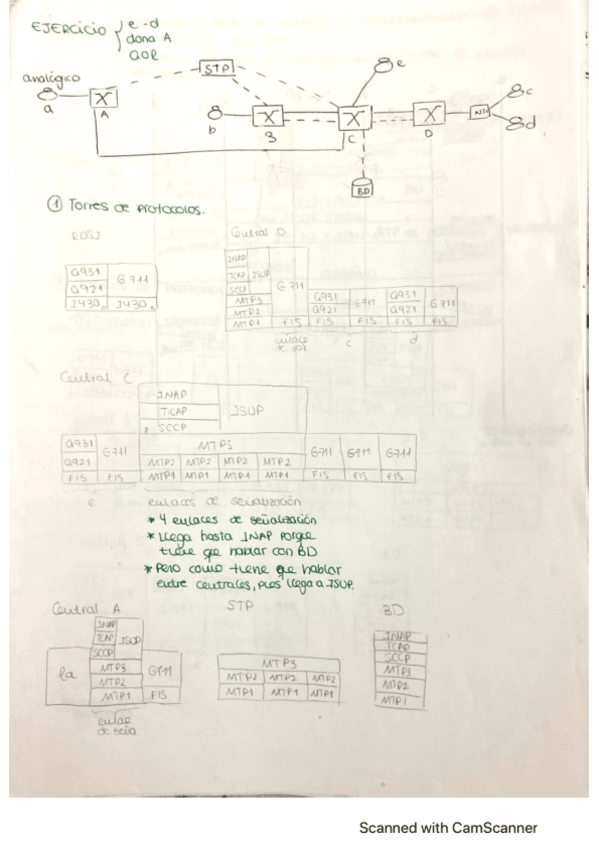 EJERCICIO { e-d
dona A
STP
e
analógico
a
X
A
b
X
3
X
C
X
D
c
d
BD
① Torres de protocolos.
Central D
Q931
Q921
I430
G711
I430
INAP
TCAP
ISUP
SCCP
MTP3
MTP2
MTP1
G711
FIS
Q931
Q921
FIS
G711
FIS
Q931
Q921
FIS
G711
FIS
enlace
c
d
Central C
INAP
TCAP
SCCP
ISUP
Q931
Q921
FIS
G711
FIS
MTP3
MTP2 MTP2 MTP2 MTP2
MTP1 MTP1 MTP1 MTP1
G711 G711 G711
FIS FIS FIS
e
enlaces de señalización
* 4 enlaces de señalización
* Llega hasta INAP porque
tiene que hablar con BD
* Pero como tiene que hablar
entre centrales, pues llega a ISUP.
Central A
STP
BD
INAP
TCAP
ISUP
SCCP
la
MTP3
MTP2
MTP1
G711
FIS
enlace
de seña
MTP3
MTP2 MTP2 MTP2
MTP1 MTP1 MTP1
INAP
TCAP
SCCP
MTP3
MTP2
MTP1
Scanned with CamScanner